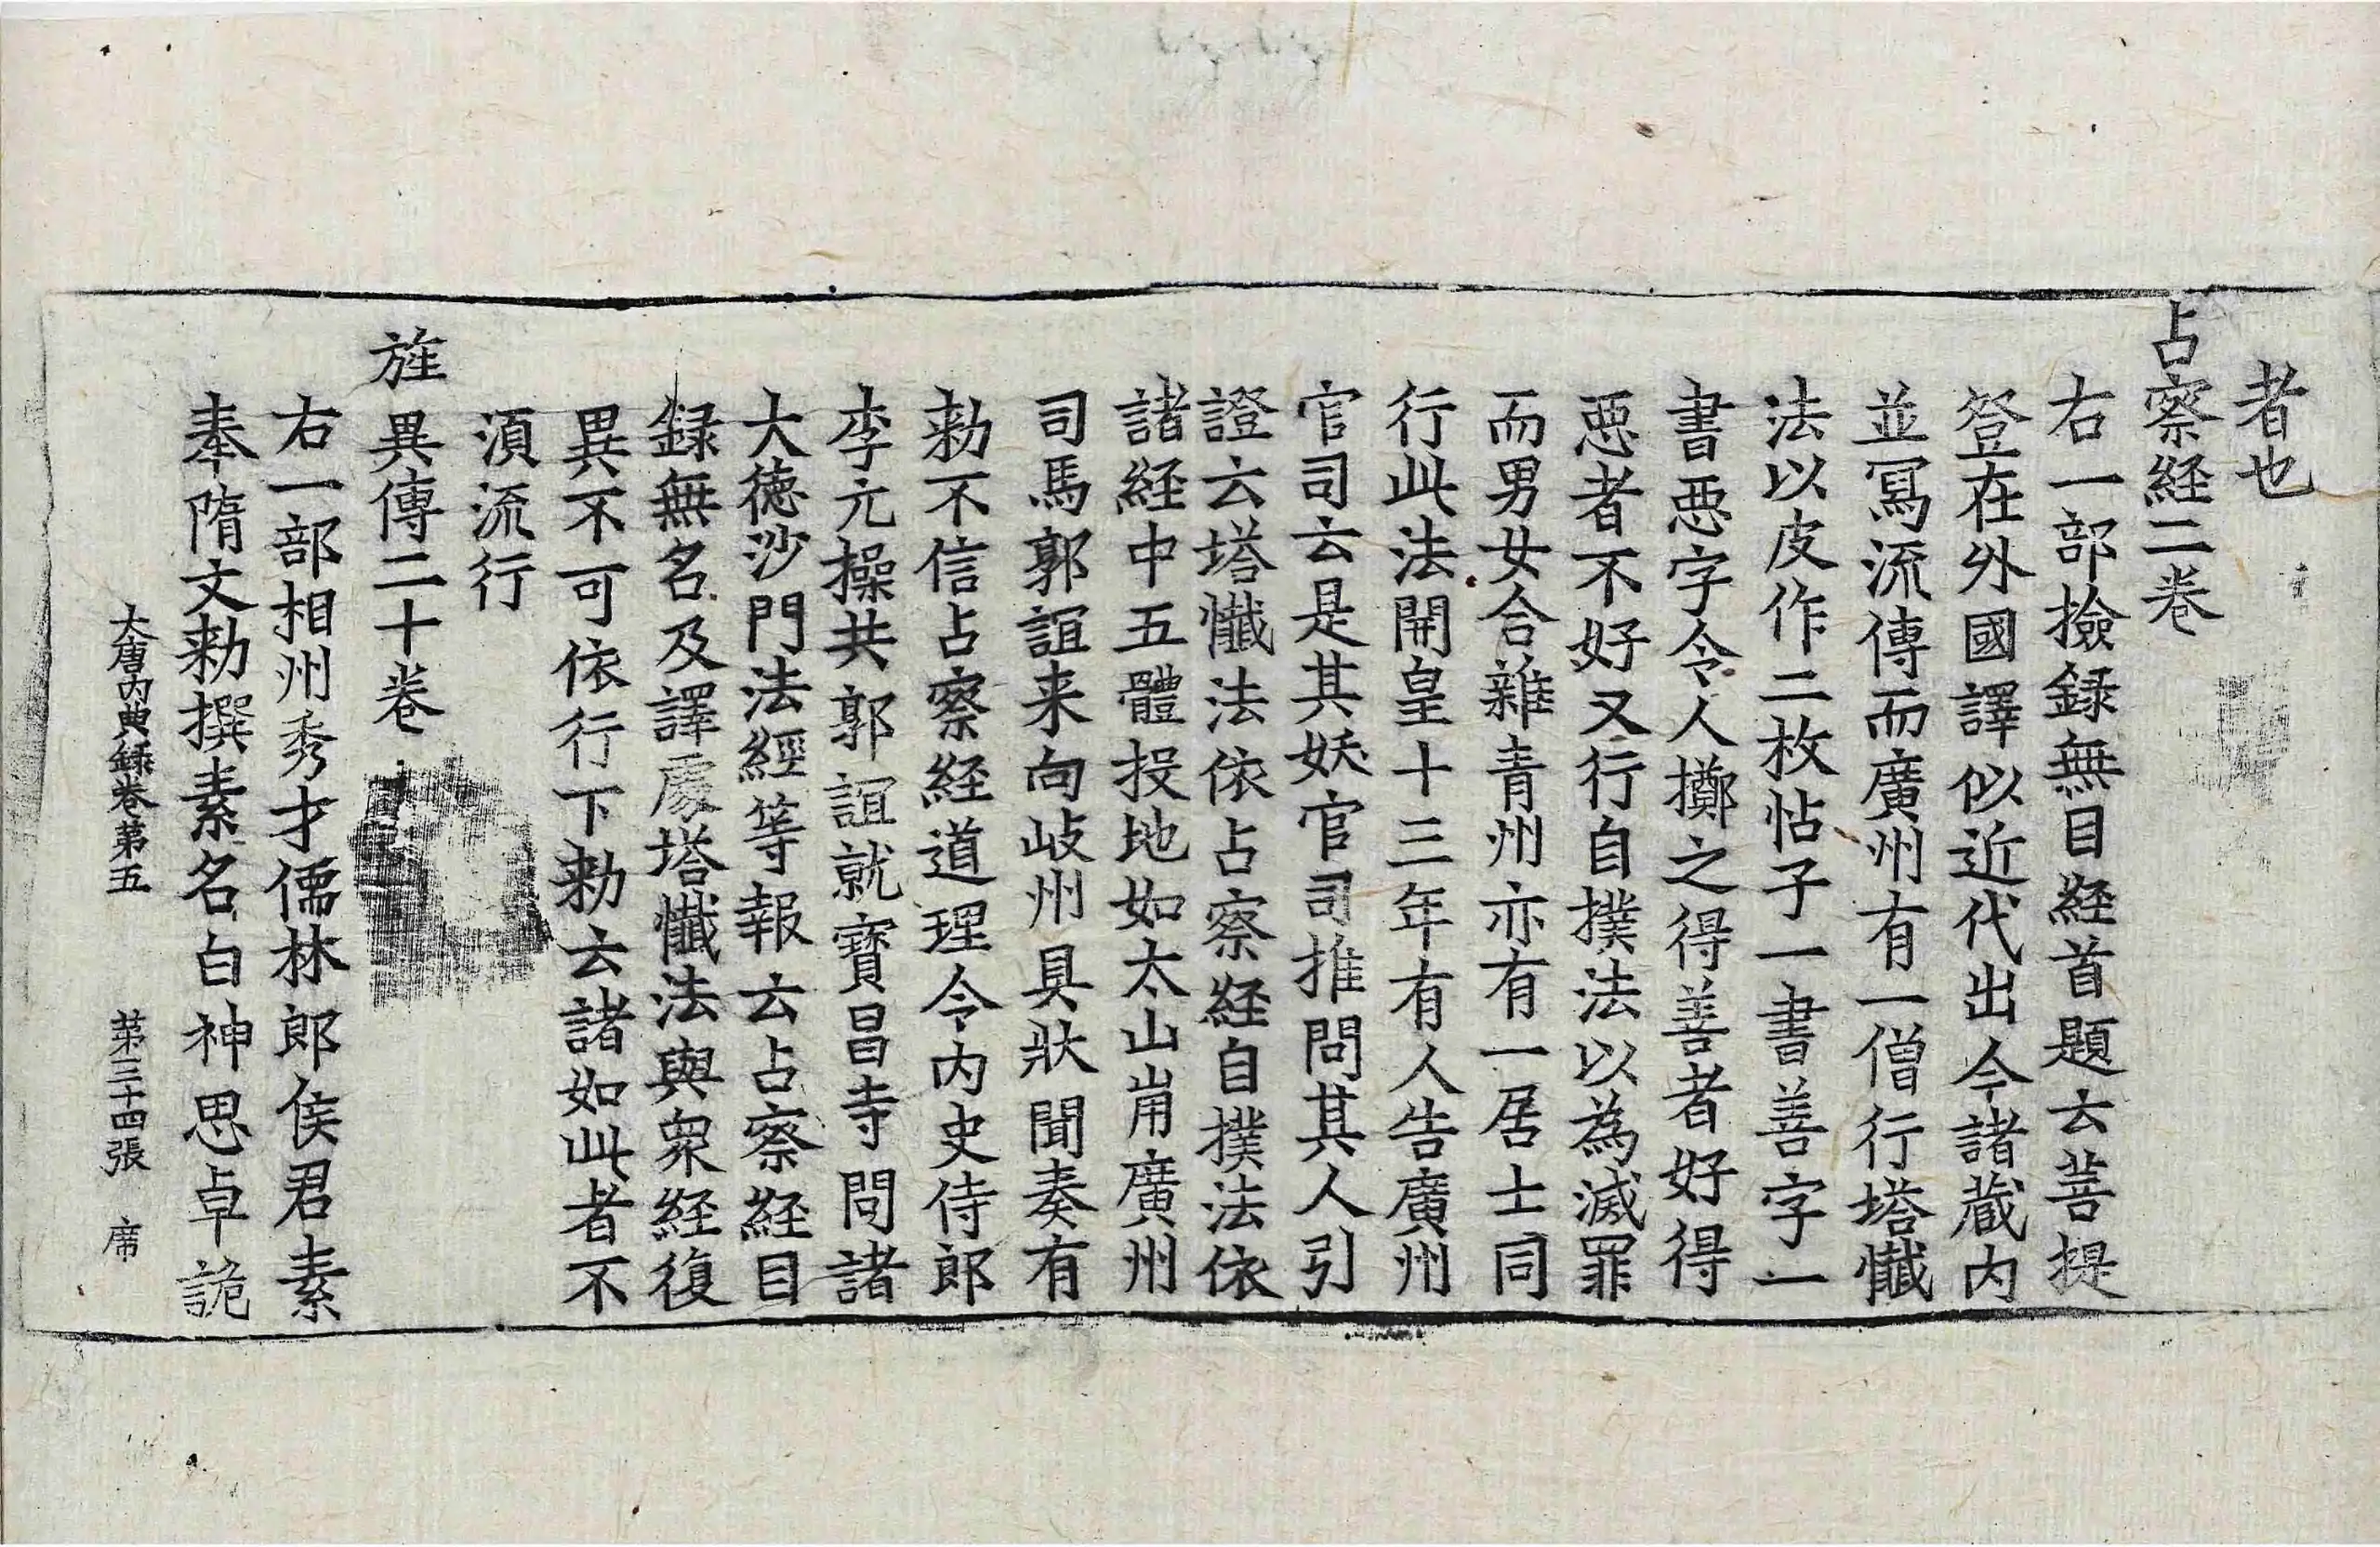 者也
占察経二巻
右一部撿録無目経首題云菩提
登在外國譯似近代出今諸蔵内
並冩流傳而廣州有一僧行塔懺
法以皮作二枚帖子一書善字一
書悪字令人擲之得善者好得
悪者不好又行自撲法以為滅罪
而男女合雜青州亦有一居士同
行此法開皇十三年有人告廣州
官司云是其妖官司推問其人引
證云塔懺法依占察経自撲法依
諸経中五體投地如太山崩廣州
司馬郭誼来向岐州具狀聞奏有
勑不信占察経道理令内史侍郎
李元操共郭誼就寳昌寺問諸
大徳沙門法經等報云占察経目
録無名及譯處塔懺法與衆経復
異不可依行下勑云諸如此者不
湏流行
旌異傳二十巻
右一部相州秀才儒林郎侯君素
奉隋文勑撰素名白神思卓詭
大唐内典録巻第五　第三十四張　席